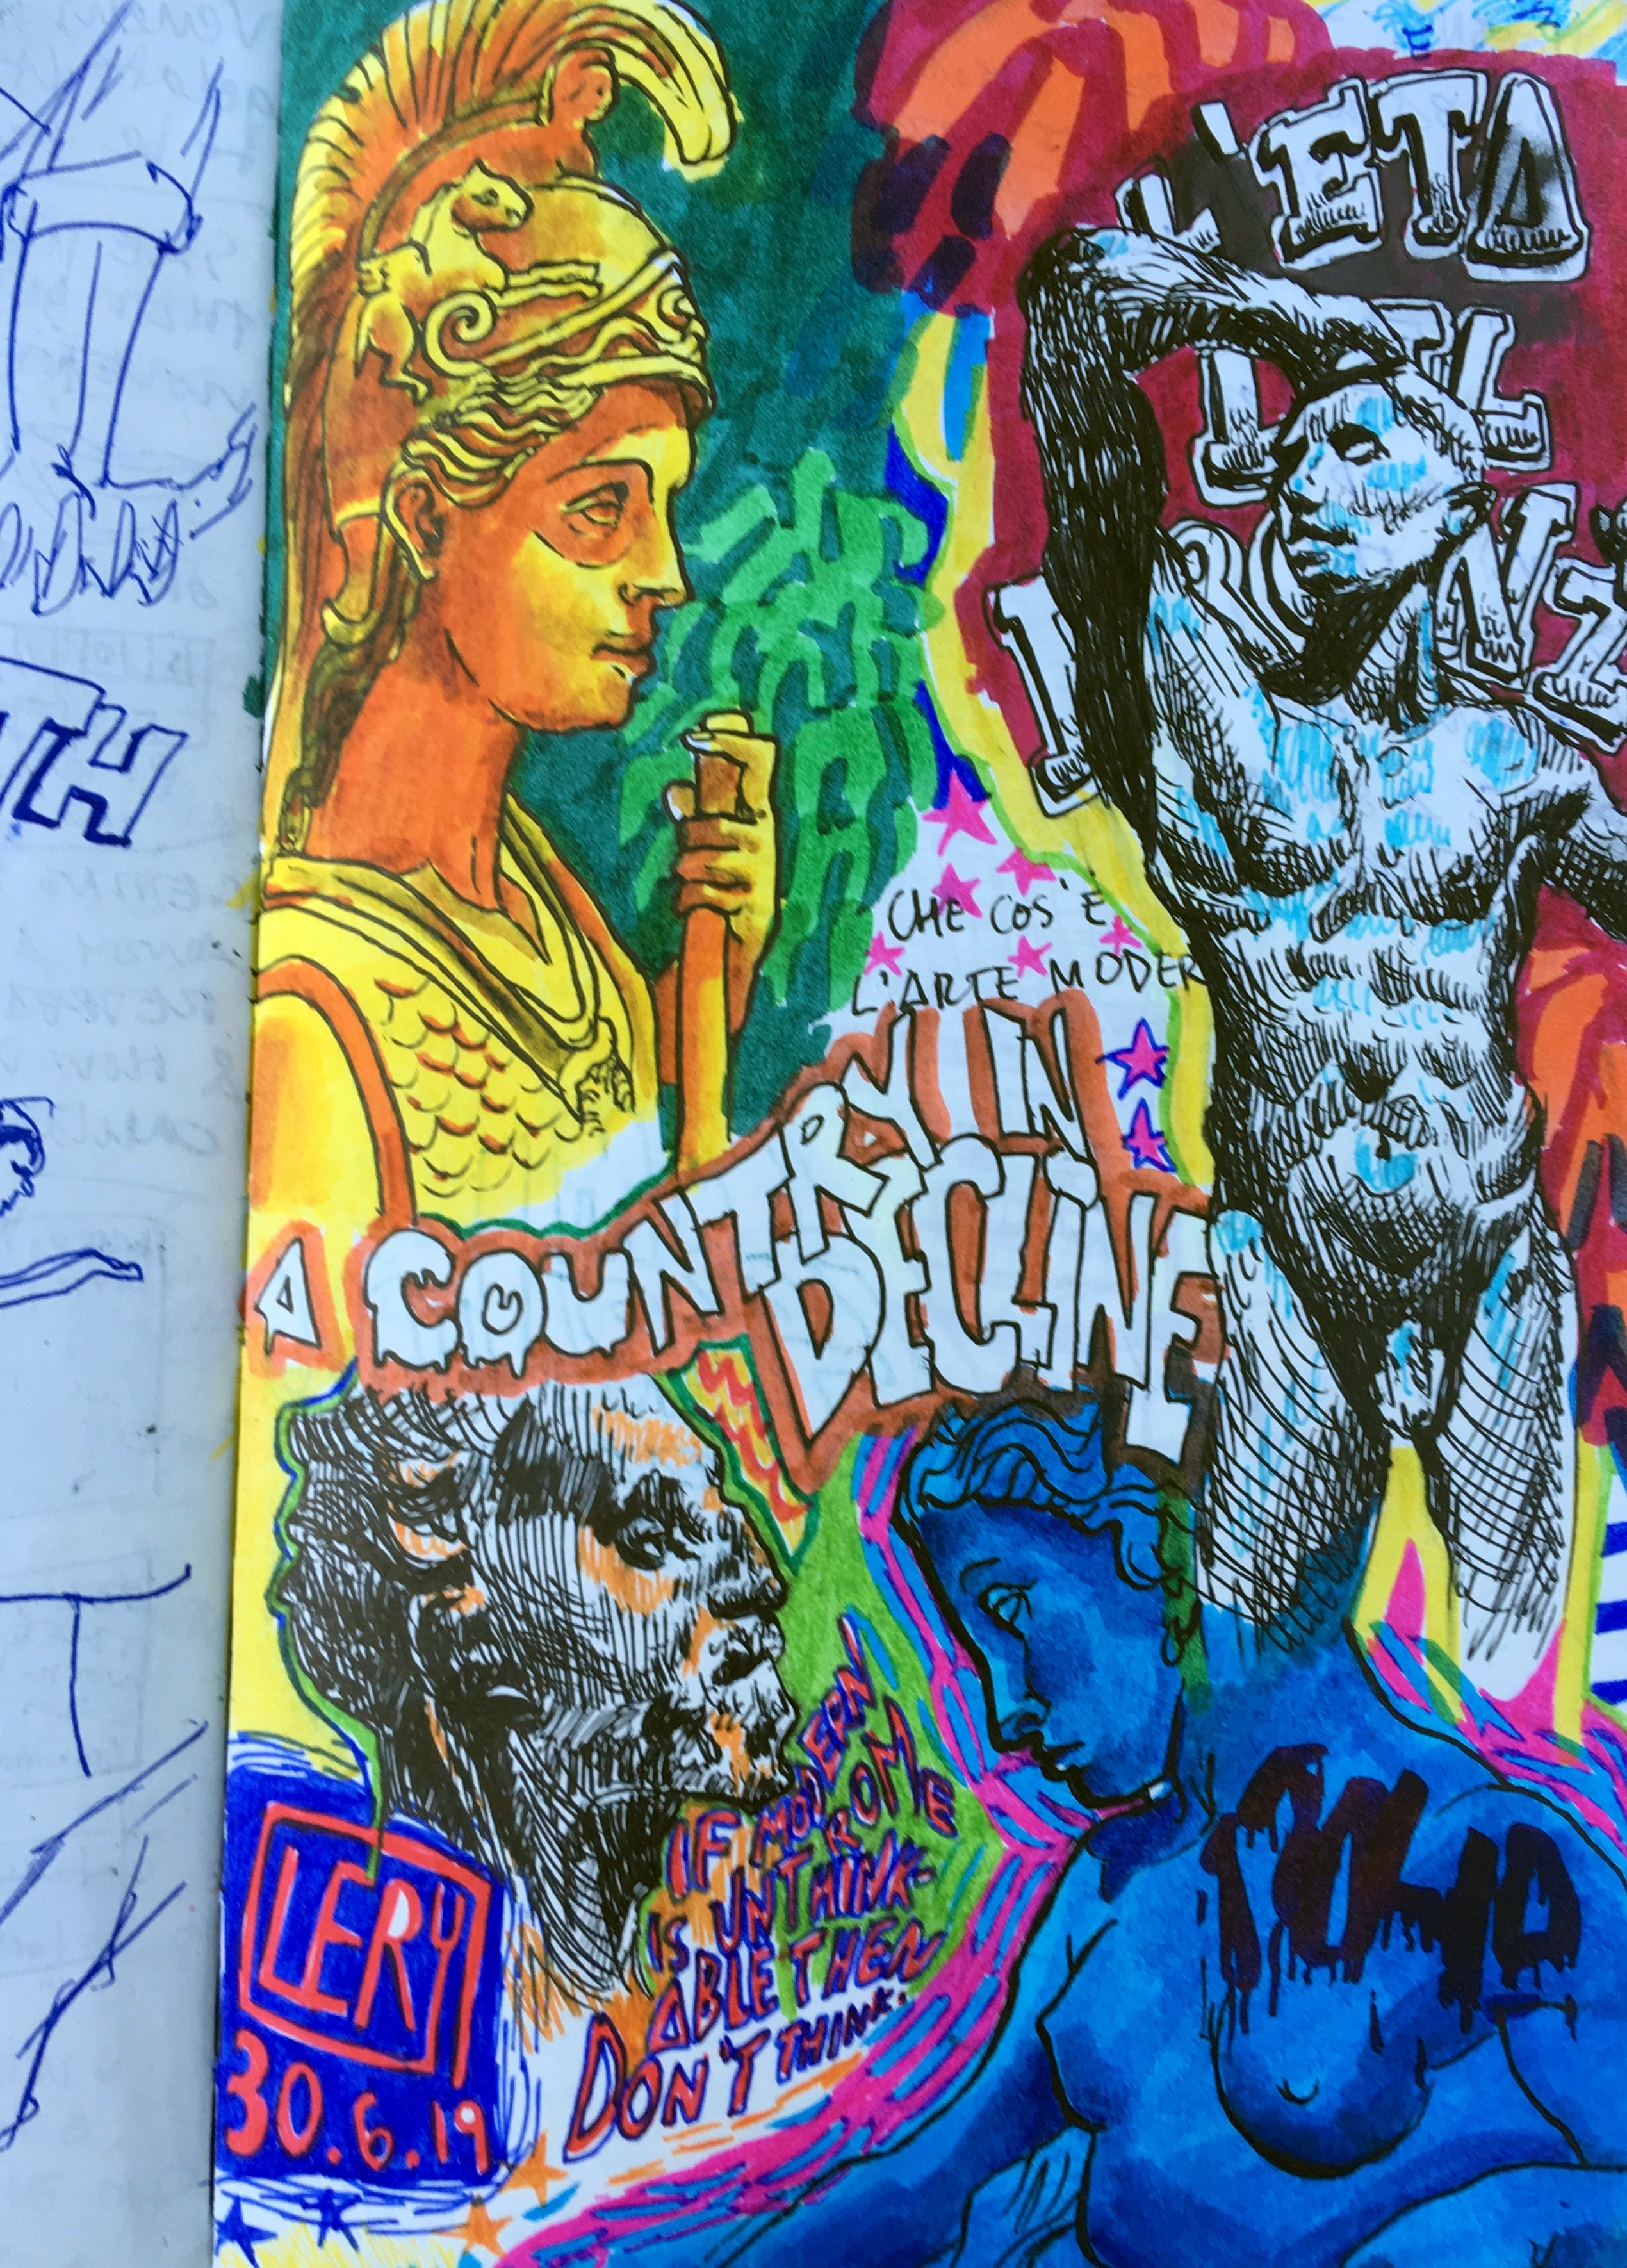 L'ETA
DEL
BRONZ
CHE COS'E
L'ARTE MODER
A COUNTRY IN
DECLINE
IF MODERN
ROME
IS UNTHINK-
ABLE THEN
DON'T THINK.
LERY
30.6.19
TH